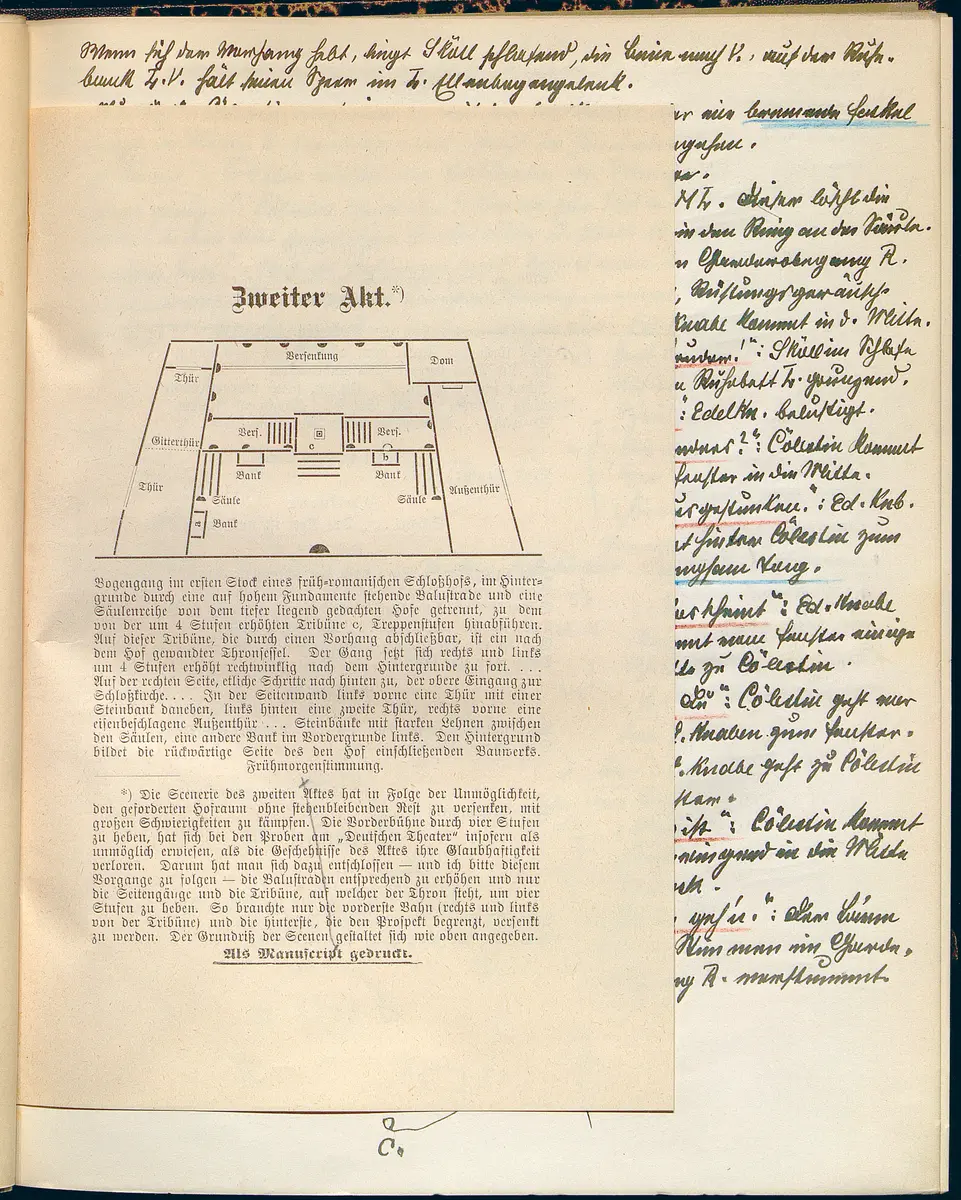 Wenn sich der Vorhang hebt, liegt Sköll schlafend, die Beine nach V., auf der Ruhe-
bank L. V. hält seinen Speer im L. Ellenbogengelenk.
er eine brennende Fackel
gehen.
L. Dieser löscht die
in den Ring an der Säule.
Garderobegang R.
, Rüstungsgeräusch
Knabe kommt in d. Mitte.
ruder!": Sköll im Schlafe
Ruhebett L. grunzend.
": Edelkn. belustigt.
nders?": Cölestin kommt
fenster in die Mitte.
usgestunken.": Ed. Knb.
t hinter Cölestin zum
ngsam Tag.
scheint": Ed. Knabe
mmt vom Fenster einige
zu Cölestin.
du": Cölestin geht vor
Knaben zum Fenster.
Knabe geht zu Cölestin
ster.
ist": Cölestin kommt
in die Mitte
geh'n.": Der Lärm
Stimmen im Garde-
ng R. verstummt.
Zweiter Akt.*)
Versenkung
Dom
Thür
Gitterthür
Vers.
c
Vers.
b
Bank
Bank
Thür
Säule
Säule
Außenthür
a
Bank
Bogengang im ersten Stock eines früh-romanischen Schloßhofs, im Hinter-
grunde durch eine auf hohem Fundamente stehende Balustrade und eine
Säulenreihe von dem tiefer liegend gedachten Hofe getrennt, zu dem
von der um 4 Stufen erhöhten Tribüne c, Treppenstufen hinabführen.
Auf dieser Tribüne, die durch einen Vorhang abschließbar, ist ein nach
dem Hof gewandter Thronsessel. Der Gang setzt sich rechts und links
um 4 Stufen erhöht rechtwinklig nach dem Hintergrunde zu fort. ...
Auf der rechten Seite, etliche Schritte nach hinten zu, der obere Eingang zur
Schloßkirche.... In der Seitenwand links vorne eine Thür mit einer
Steinbank daneben, links hinten eine zweite Thür, rechts vorne eine
eisenbeschlagene Außenthür ... Steinbänke mit starken Lehnen zwischen
den Säulen, eine andere Bank im Vordergrunde links. Den Hintergrund
bildet die rückwärtige Seite des den Hof einschließenden Bauwerks.
Frühmorgenstimmung.
*) Die Scenerie des zweiten Aktes hat in Folge der Unmöglichkeit,
den geforderten Hofraum ohne stehenbleibenden Rest zu versenken, mit
großen Schwierigkeiten zu kämpfen. Die Vorderbühne durch vier Stufen
zu heben, hat sich bei den Proben am „Deutschen Theater" insofern als
unmöglich erwiesen, als die Geschehnisse des Aktes ihre Glaubhaftigkeit
verloren. Darum hat man sich dazu entschlossen — und ich bitte diesem
Vorgange zu folgen — die Balustraden entsprechend zu erhöhen und nur
die Seitengänge und die Tribüne, auf welcher der Thron steht, um vier
Stufen zu heben. So brauchte nur die vorderste Bahn (rechts und links
von der Tribüne) und die hinterste, die den Prospekt begrenzt, versenkt
zu werden. Der Grundriß der Scenen gestaltet sich wie oben angegeben.
Als Manuscript gedruckt.
C.